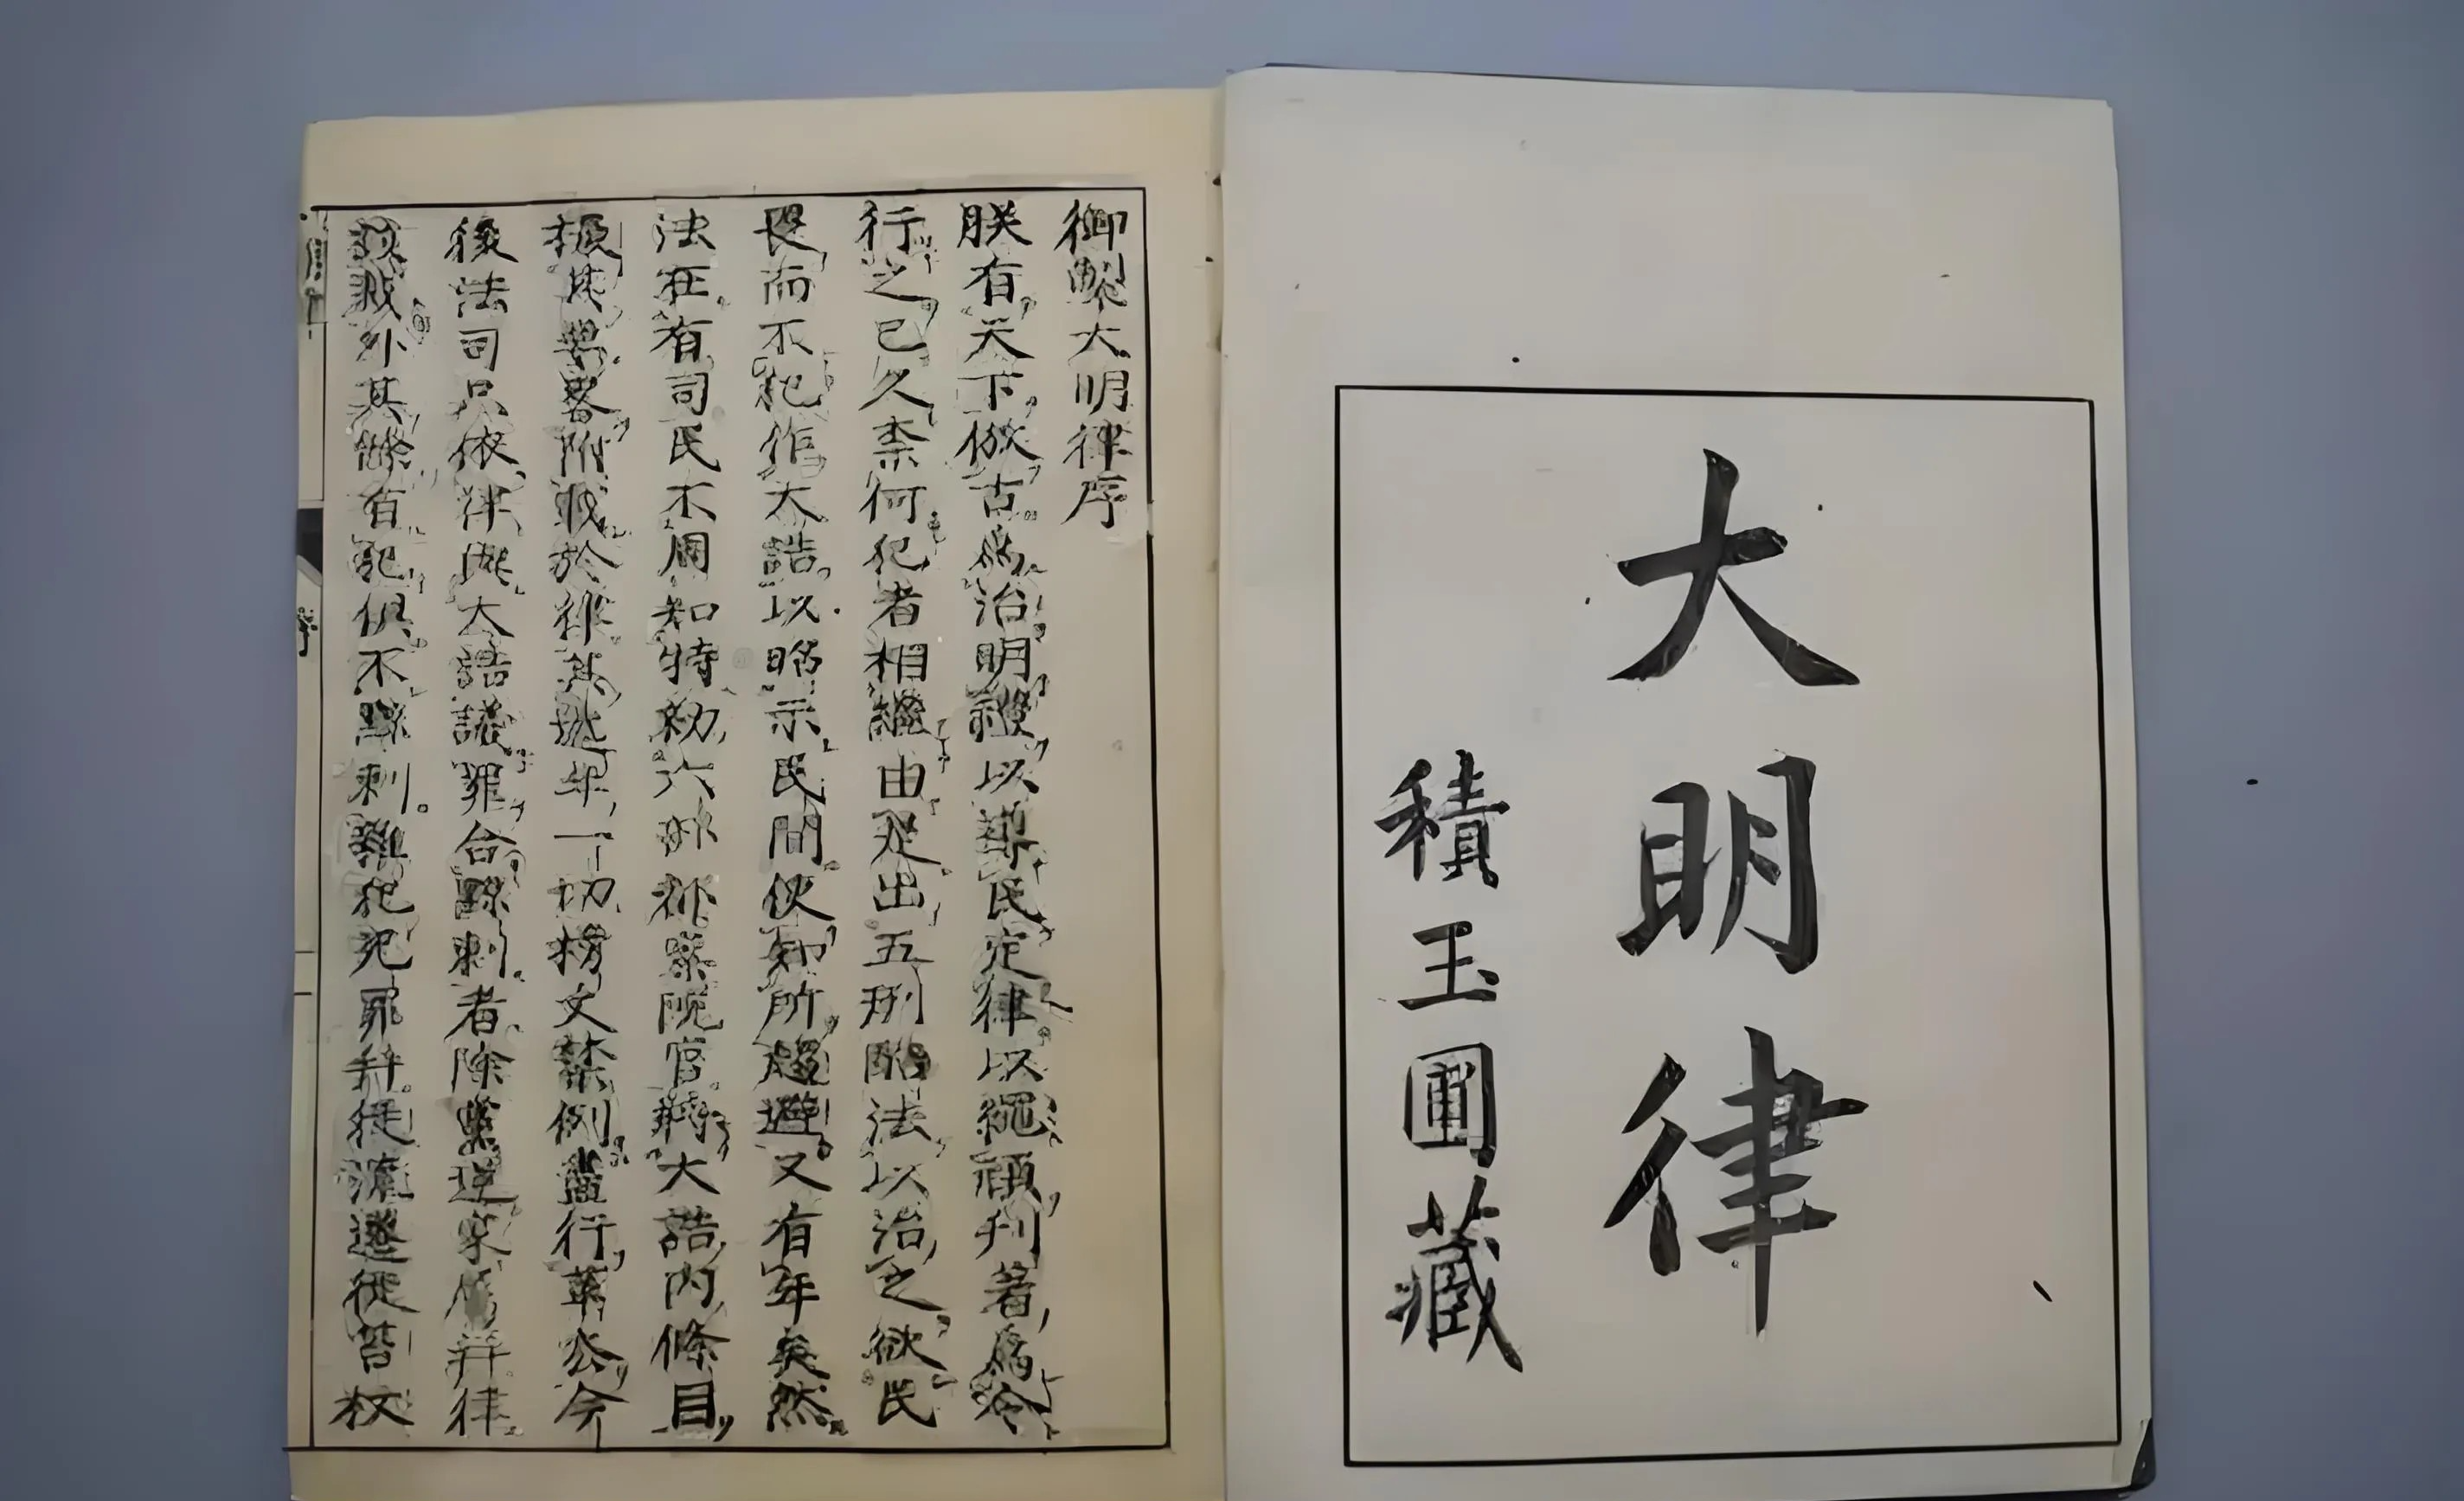 大明律
積玉圃藏
御製大明律序
朕有天下倣古爲治明禮以導民定律以繩頑刊著爲令
行之已久柰何犯者相繼由是出五刑酷法以治之欲民
畏而不犯作大誥以昭示民間使知所趨避又有年矣然
法在有司民不周知特敕六部都察院官將大誥內條目
撮其要畧附載於律其逓年一切榜文禁例盡行革去今
後法司只依律與大誥議罪合黥刺者除黨逆家屬并律
該載外其餘有犯俱不黥刺雜犯死罪并徒流遷徙笞杖